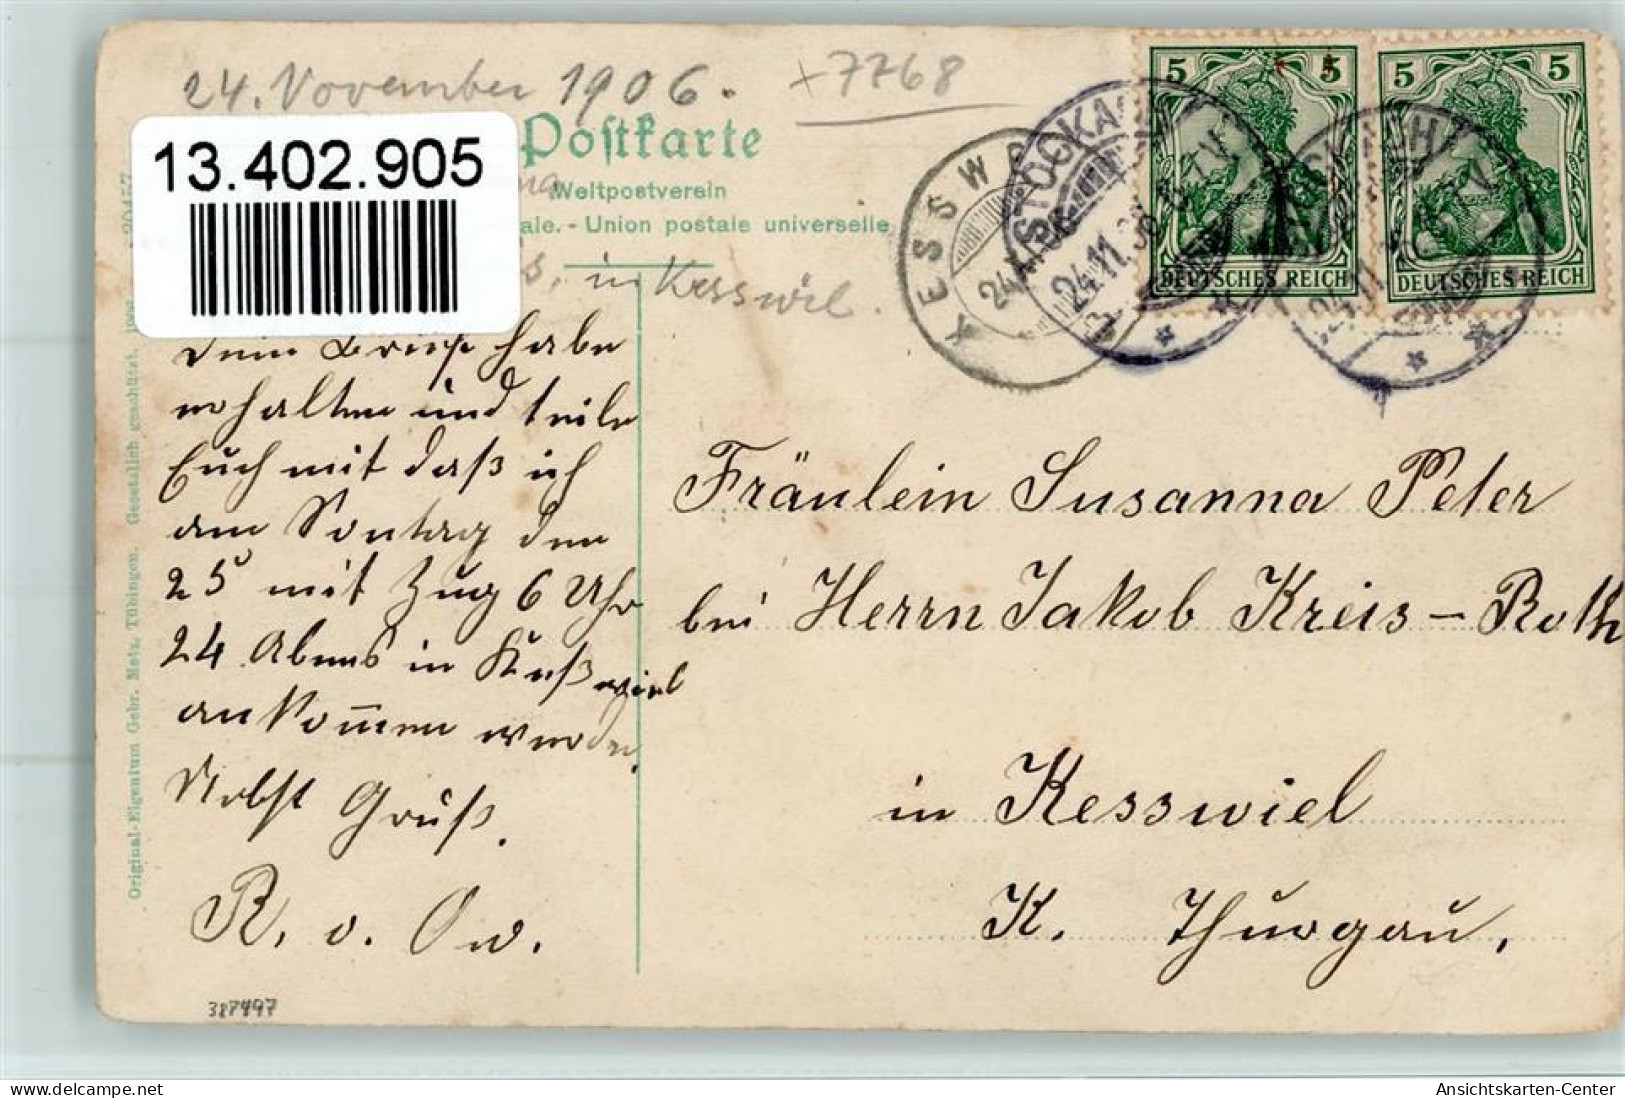 24. November 1906.
+7768
13.402.905
Postkarte
Weltpostverein
ale. - Union postale universelle
in Kesswil.
KESSWIL
24.XI.06
STOCKACH
24.11.
5 5
DEUTSCHES REICH
5 5
DEUTSCHES REICH
STOCKACH
24.11.
Original-Eigentum Gebr. Metz, Tübingen. Gesetzlich geschützt.
Dein Brief habe
erhalten und teile
Euch mit daß ich
am Sontag den
25 mit Zug 6 Uhr
24 Abens in Keßwiel
ankommen werde.
Nebst Gruß.
R. v. Ow.
387497
Fräulein Susanna Peter
bei Herrn Jakob Kreis-Roth
in Kesswiel
K. Thurgau.
delcampe.net
Ansichtskarten-Center